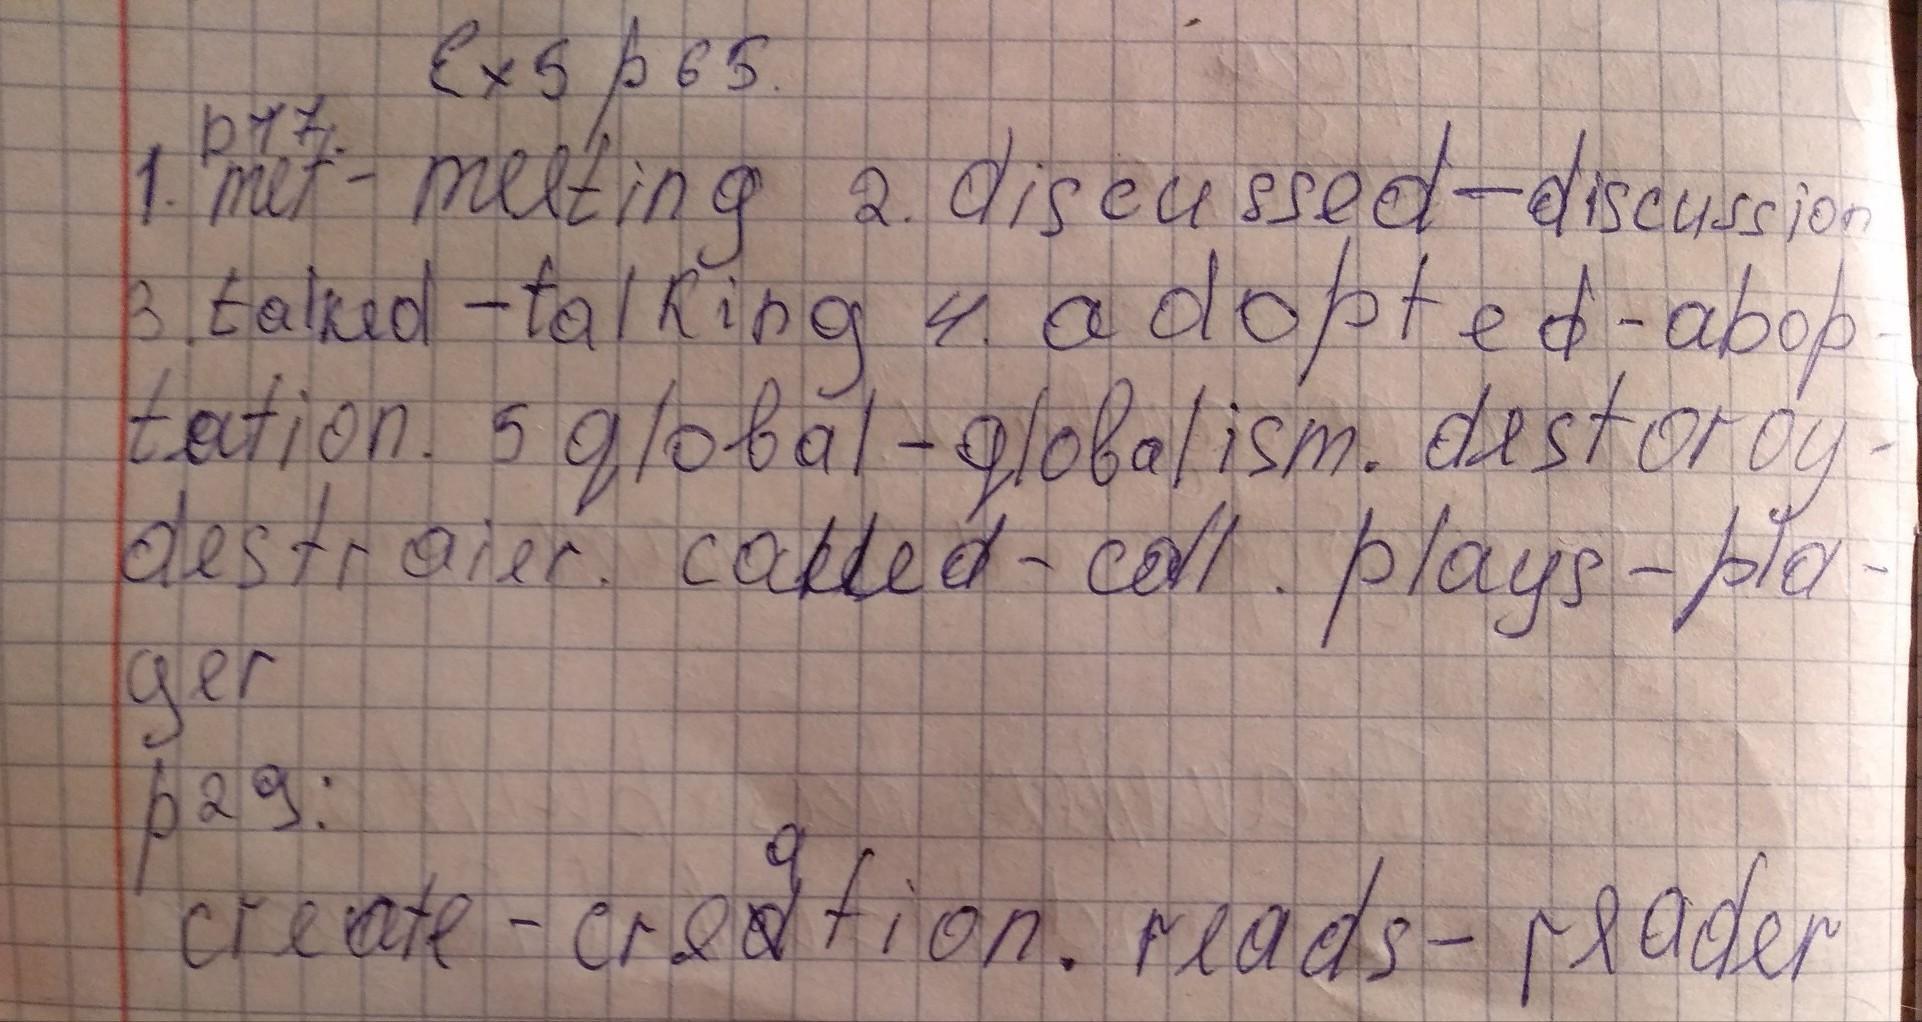 Ex 5 p 65.
p 17.
1. met - meeting 2. discussed - discussion
3. talked - talking 4. adopted - abop-
tation. 5 global - globalism. destoroy -
destraier. called - call. plays - pla-
yer
p 29:
create - creation. reads - reader